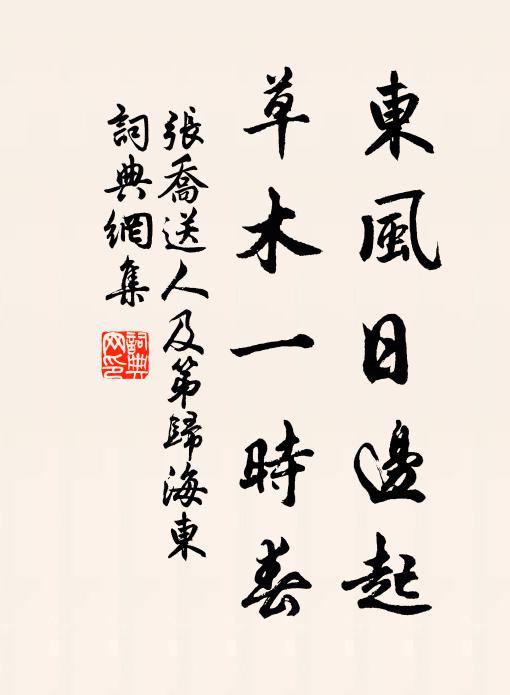 東風日邊起
草木一時春
張喬送人及第歸海東
詞典網集
詞典網印